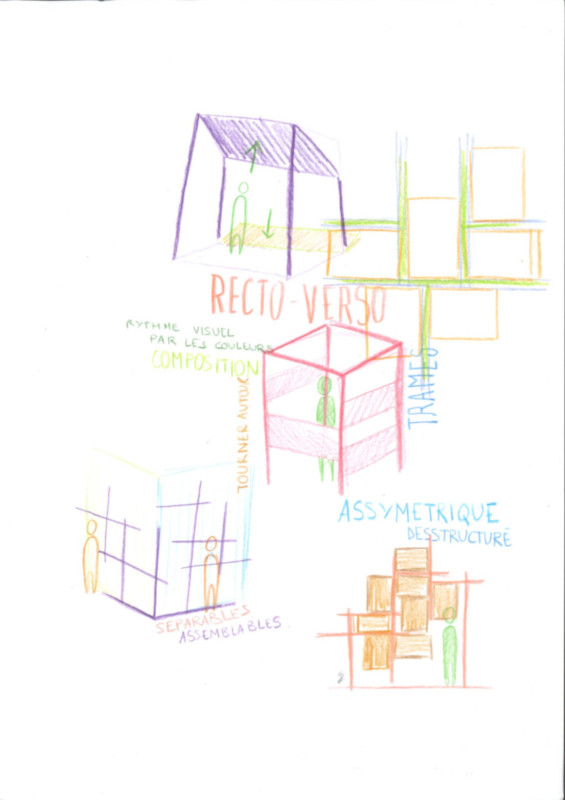 RECTO-VERSO
RYTHME VISUEL
PAR LES COULEURS
COMPOSITION
TOURNER AUTOUR
TRAMES
ASSYMETRIQUE
DESSTRUCTURÉ
SEPARABLES
ASSEMBLABLES.